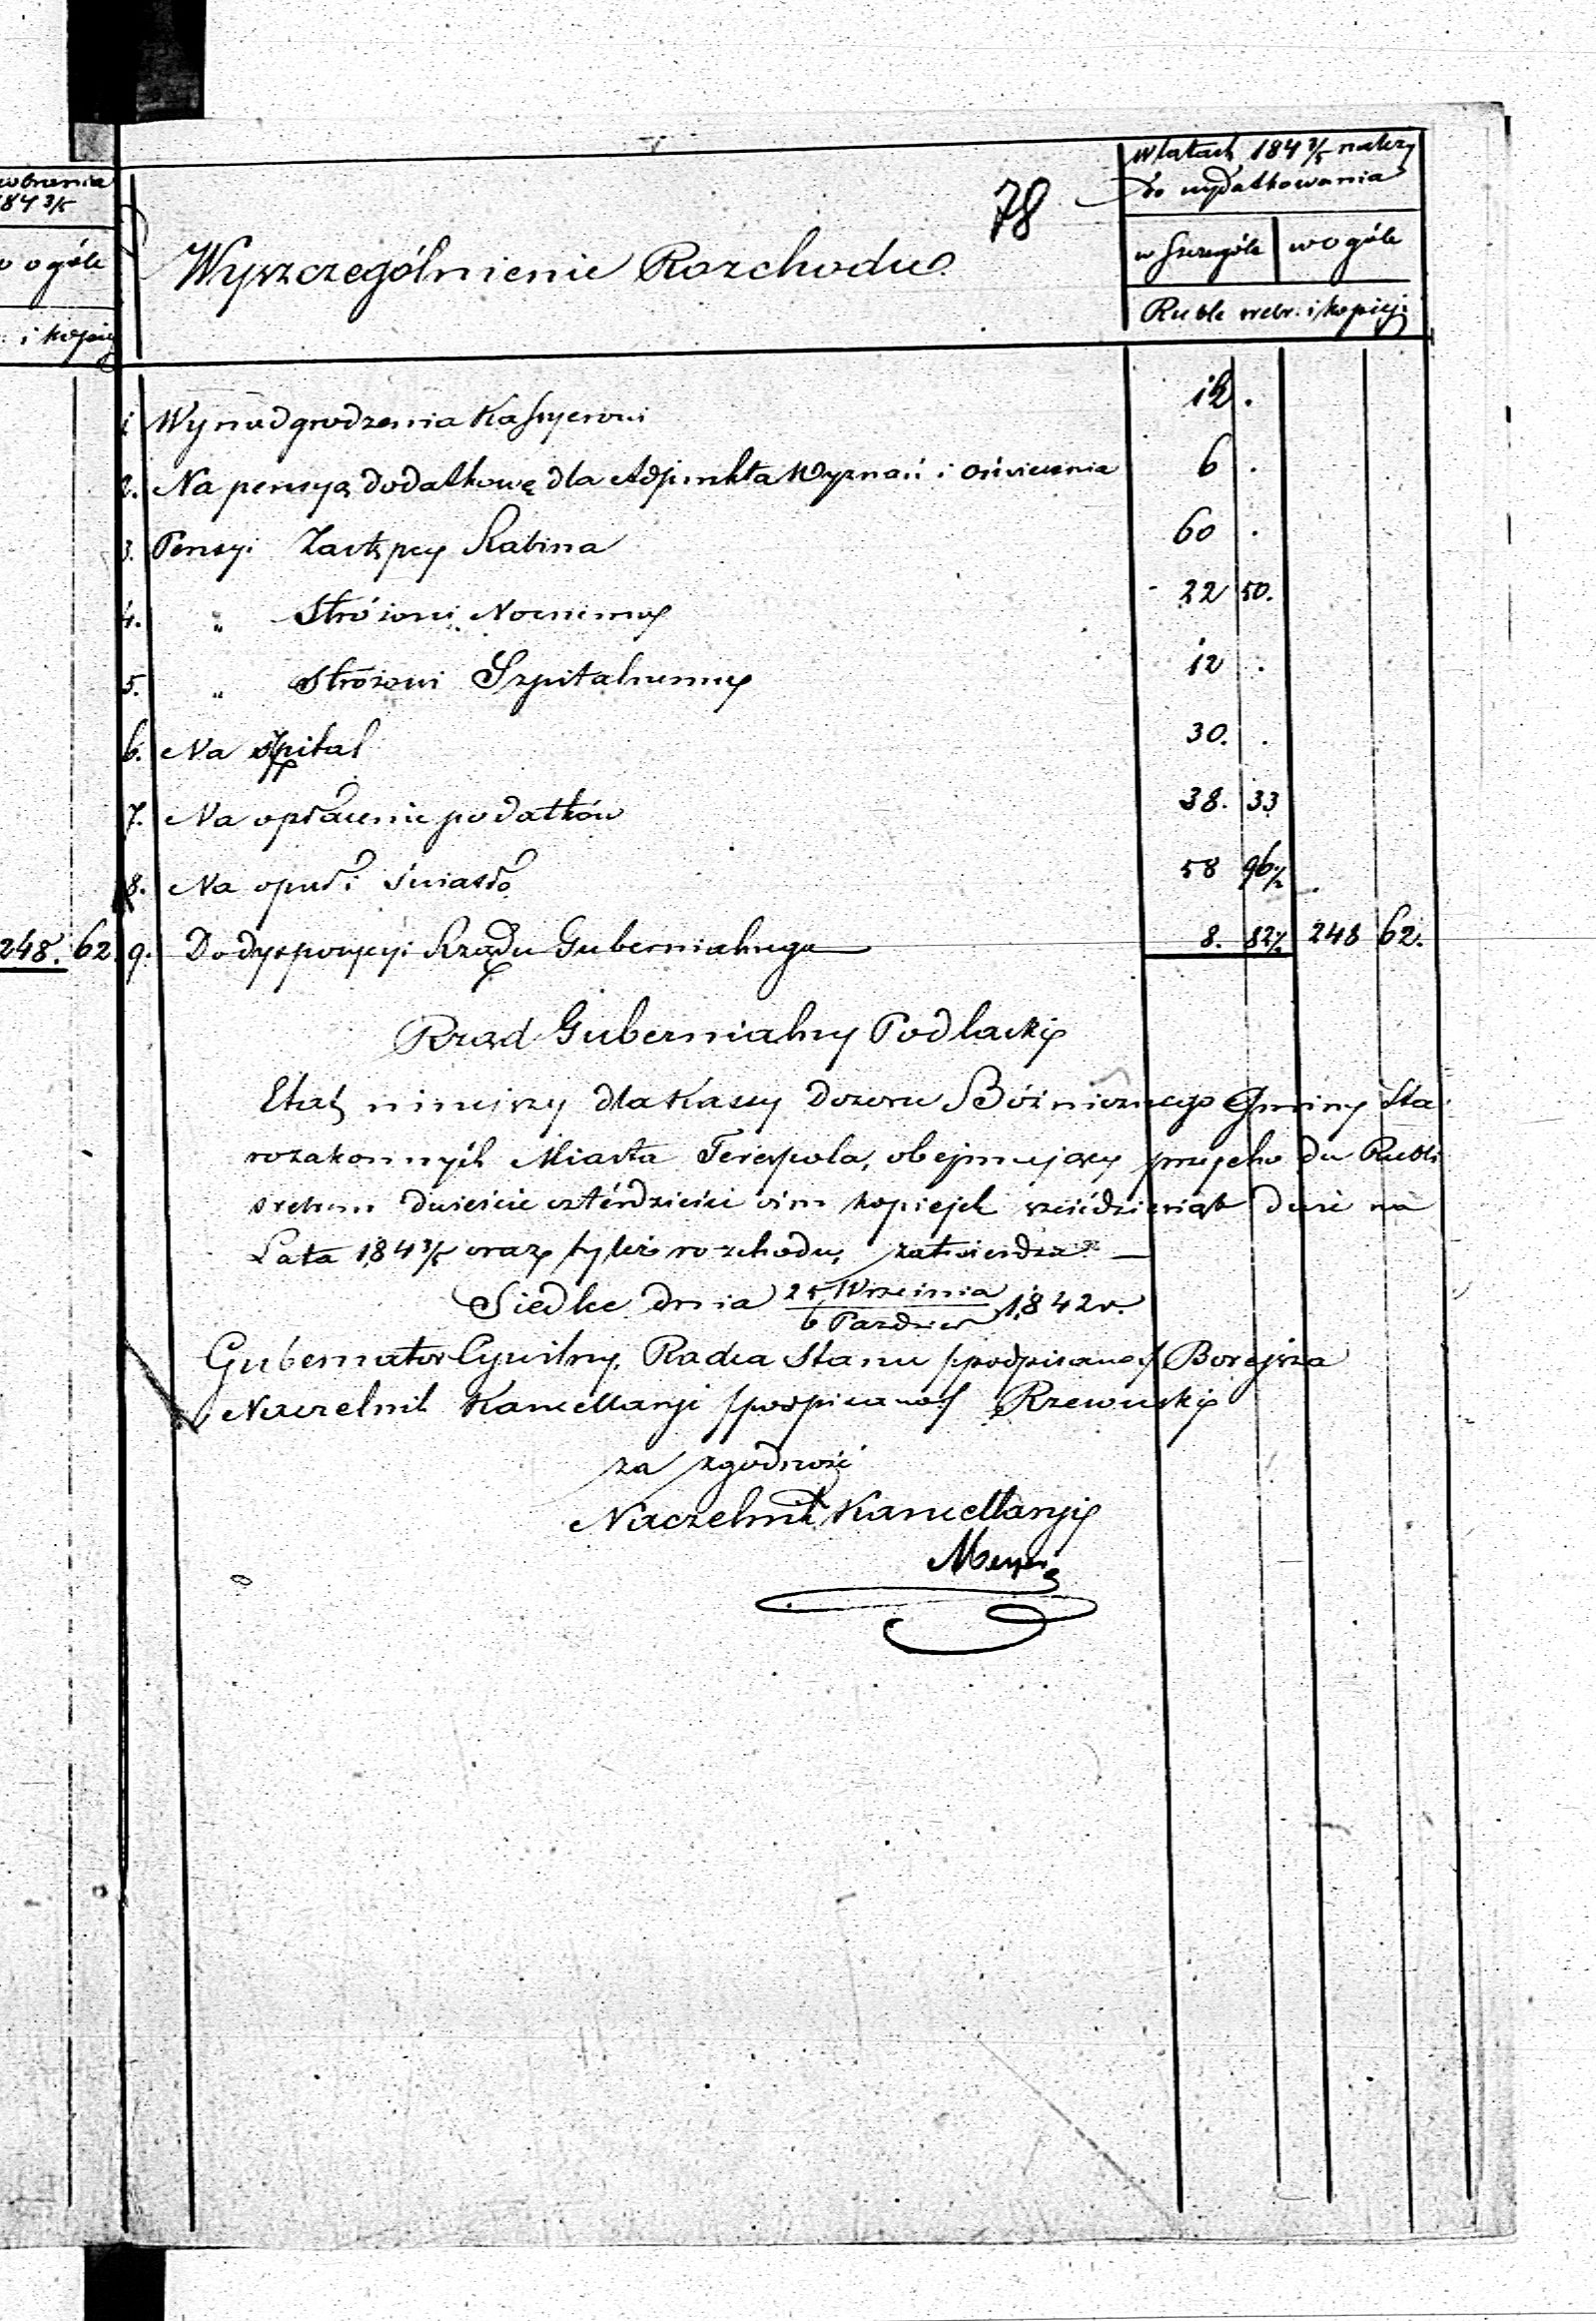 78
w latach 184 3/5 należy
do wydatkowania
w szczególe | w ogóle
Ruble srebr: i kopiej:
184 3/5
o ogóle
: i kopiej
Wyszczególnienie Rozchodu.
1 Wynadgrodzenia Kassyerowi 12 .
2. Na pensyą dodatkową dla Adjunkta Wyznań i Oświecenia 6 .
3. Pensyi Zastępcy Rabina 60 .
4. „ Stróżowi Nocnemu 22 50.
5. „ Stróżowi Szpitalnemu 12 .
6. Na szpital 30. .
7. Na opłacenie podatków 38. 33
8. Na opał i światło 58 96½
248. 62. 9. Do dyspozycyi Rządu Gubernialnego 8. 82½ 248 62.
Rząd Gubernialny Podlaski
Etat niniejszy dla Kassy dozoru Bóżnicznego Gminy Sta-
rozakonnych Miasta Terespola, obejmujący przychodu Rubli
srebrem dwieście czterdzieści ośm kopiejek sześćdziesiąt dwie na
Lata 184 3/5 oraz tyleż rozchodu, zatwierdza. —
Siedlce dnia 25 Września / 6 Paździer 1842 r.
Gubernator Cywilny, Radca Stanu /podpisano/ Borejsza
Naczelnik Kancellaryi /podpisano/ Rzewuski
za zgodność
Naczelnik Kancellaryi